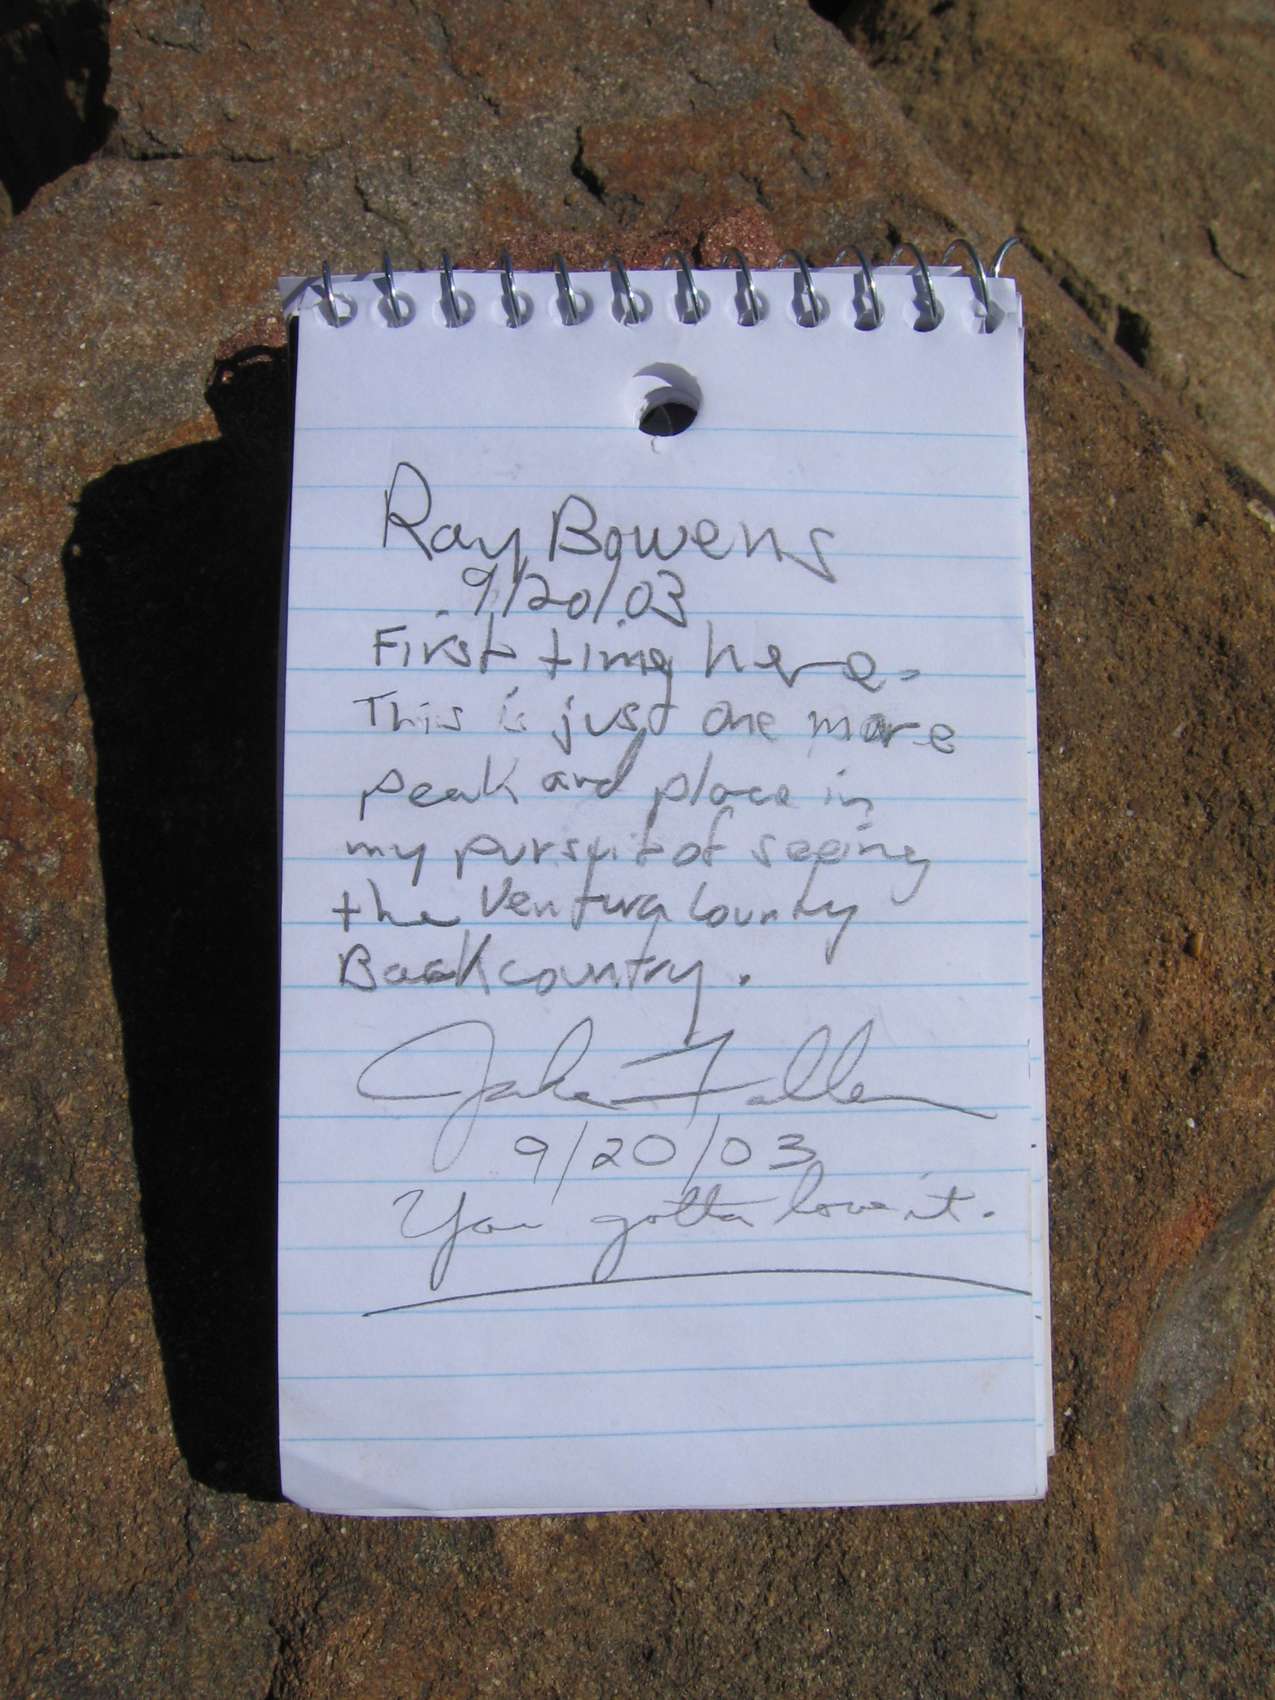 Ray Bowens
9/20/03
First time here.
This is just one more
peak and place in
my pursuit of seeing
the Ventura County
Backcountry.
Jake
9/20/03
You gotta love it.